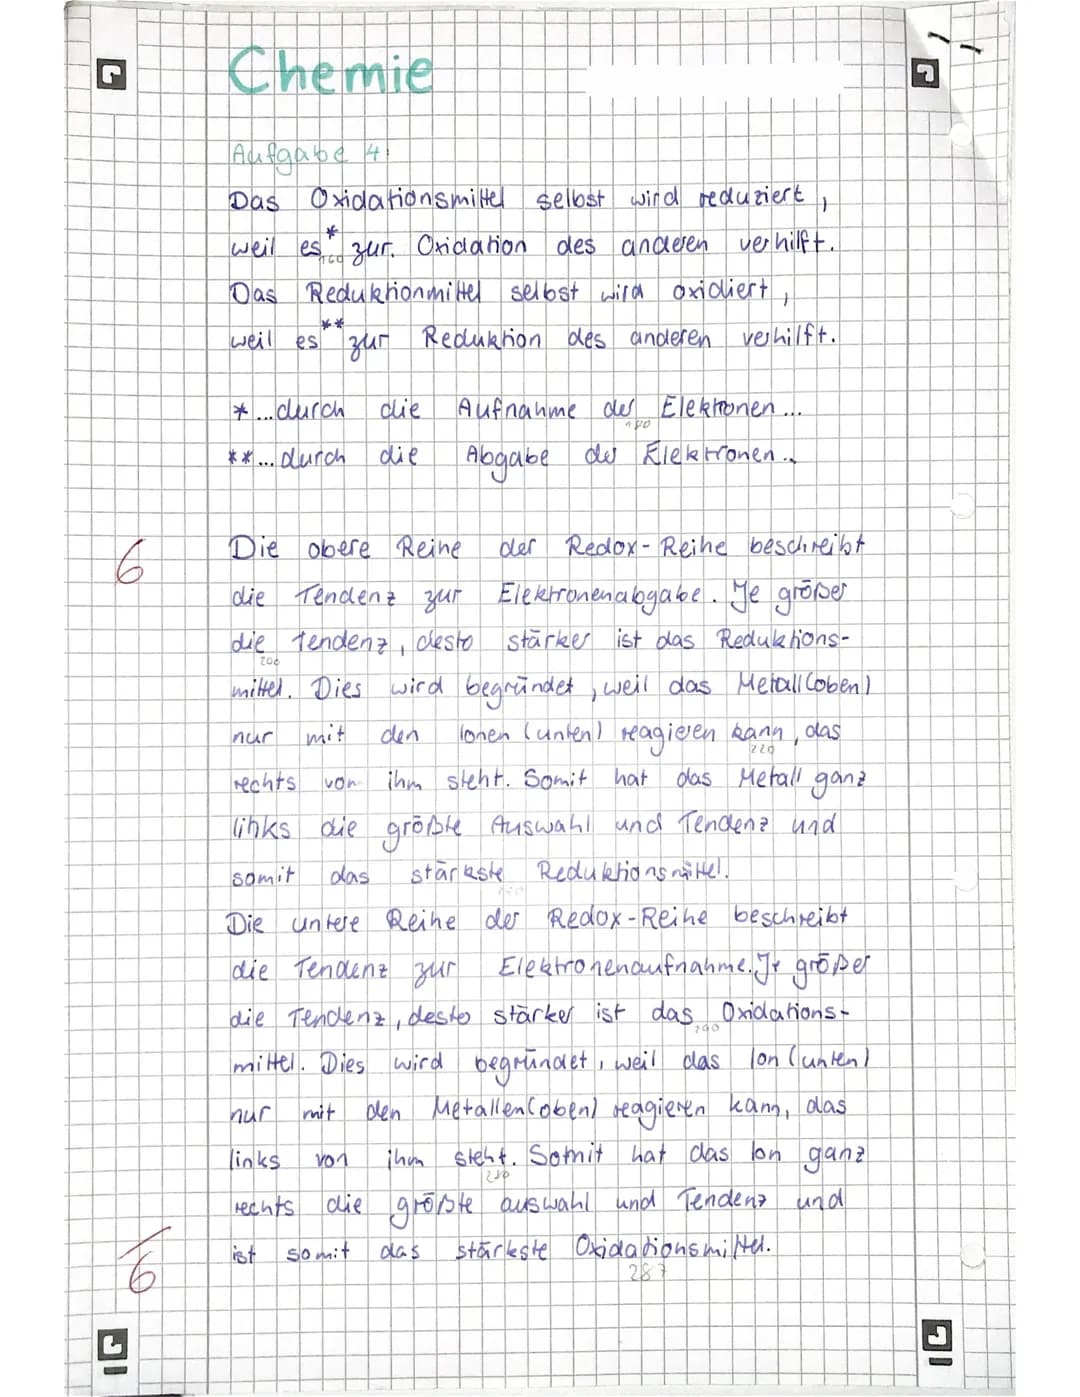 Chemie
Aufgabe 4:
Das Oxidationsmittel selbst wird reduziert,
weil es* zur Oxidation des anderen verhilft.
160
Das Reduktionmittel selbst wird oxidiert,
weil es** zur Reduktion des anderen verhilft.
* ...durch die Aufnahme der Elektronen...
180
** ...durch die Abgabe der Elektronen..
6
Die obere Reihe der Redox-Reihe beschreibt
die Tendenz zur Elektronenabgabe. Je größer
die Tendenz, desto stärker ist das Reduktions-
200
mittel. Dies wird begründet, weil das Metall (oben)
nur mit den Ionen (unten) reagieren kann, das
220
rechts von ihm steht. Somit hat das Metall ganz
links die größte Auswahl und Tendenz und
somit das stärkste Reduktionsmittel.
Die untere Reihe der Redox-Reihe beschreibt
die Tendenz zur Elektronenaufnahme. Je größer
die Tendenz, desto stärker ist das Oxidations-
mittel. Dies wird begründet, weil das Ion (unten)
nur mit den Metallen (oben) reagieren kann, das
links von ihm steht. Somit hat das Ion ganz
rechts die größte auswahl und Tendenz und
ist somit das stärkste Oxidationsmittel.
287
6